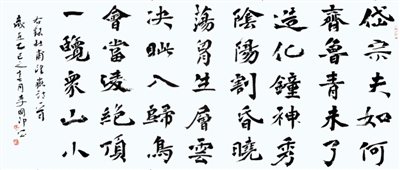 岱宗夫如何
齊魯青未了
造化鐘神秀
陰陽割昏曉
蕩胷生層雲
决眦入歸鳥
會當凌絕頂
一覽衆山小
右錄杜甫望嶽詩一首
歲在乙巳之